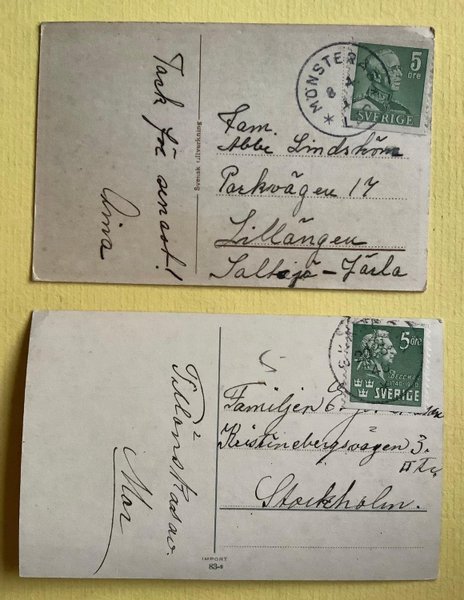 Tack för senast!
Aina
Svensk tillverkning
MÖNSTER
5
öre
SVERIGE
Fam.
Abbe Lindström
Parkvägen 17
Lillängen
Saltsjö-Järla
Tillönskas av
Mor
5 öre
SVERIGE
Familjen
Kristinebergsvägen 3.
Stockholm.
IMPORT